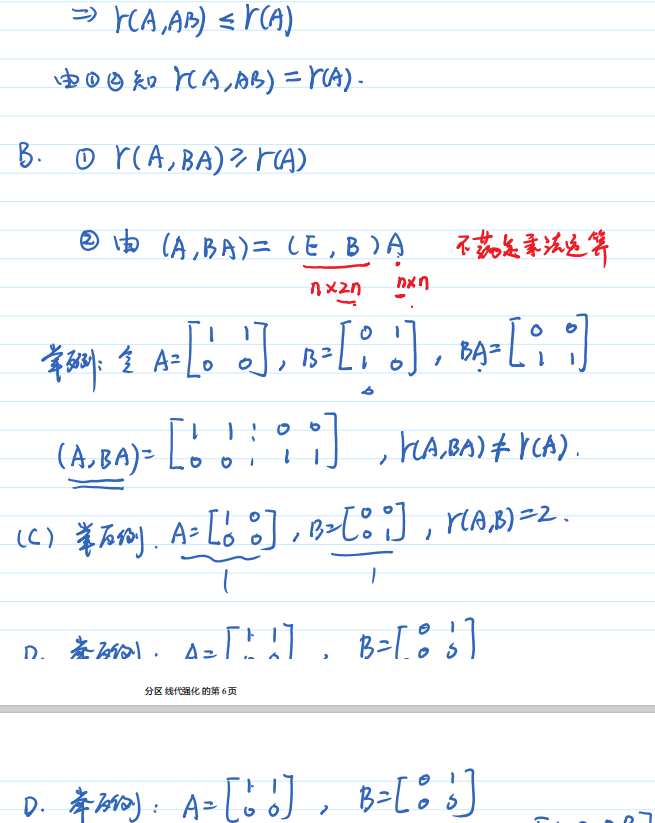 ⇒ r(A,AB) ≤ r(A)
由①②知 r(A,AB) = r(A).
B. ① r(A,BA) ≥ r(A)
② 由 (A,BA) = (E,B)A 不满足乘法运算
n×2n n×n
举反例: 令 A=[1 1; 0 0], B=[0 1; 1 0], BA=[0 0; 1 1]
(A,BA)=[1 1 ⋮ 0 0; 0 0 ⋮ 1 1], r(A,BA) ≠ r(A).
(C) 举反例. A=[1 0; 0 0], B=[0 0; 0 1], r(A,B)=2.
1 1
D. 举反例: A=[1 1; 0 0], B=[0 1; 0 0]
分区 线代强化 的第 6 页
D. 举反例: A=[1 1; 0 0], B=[0 1; 0 0]